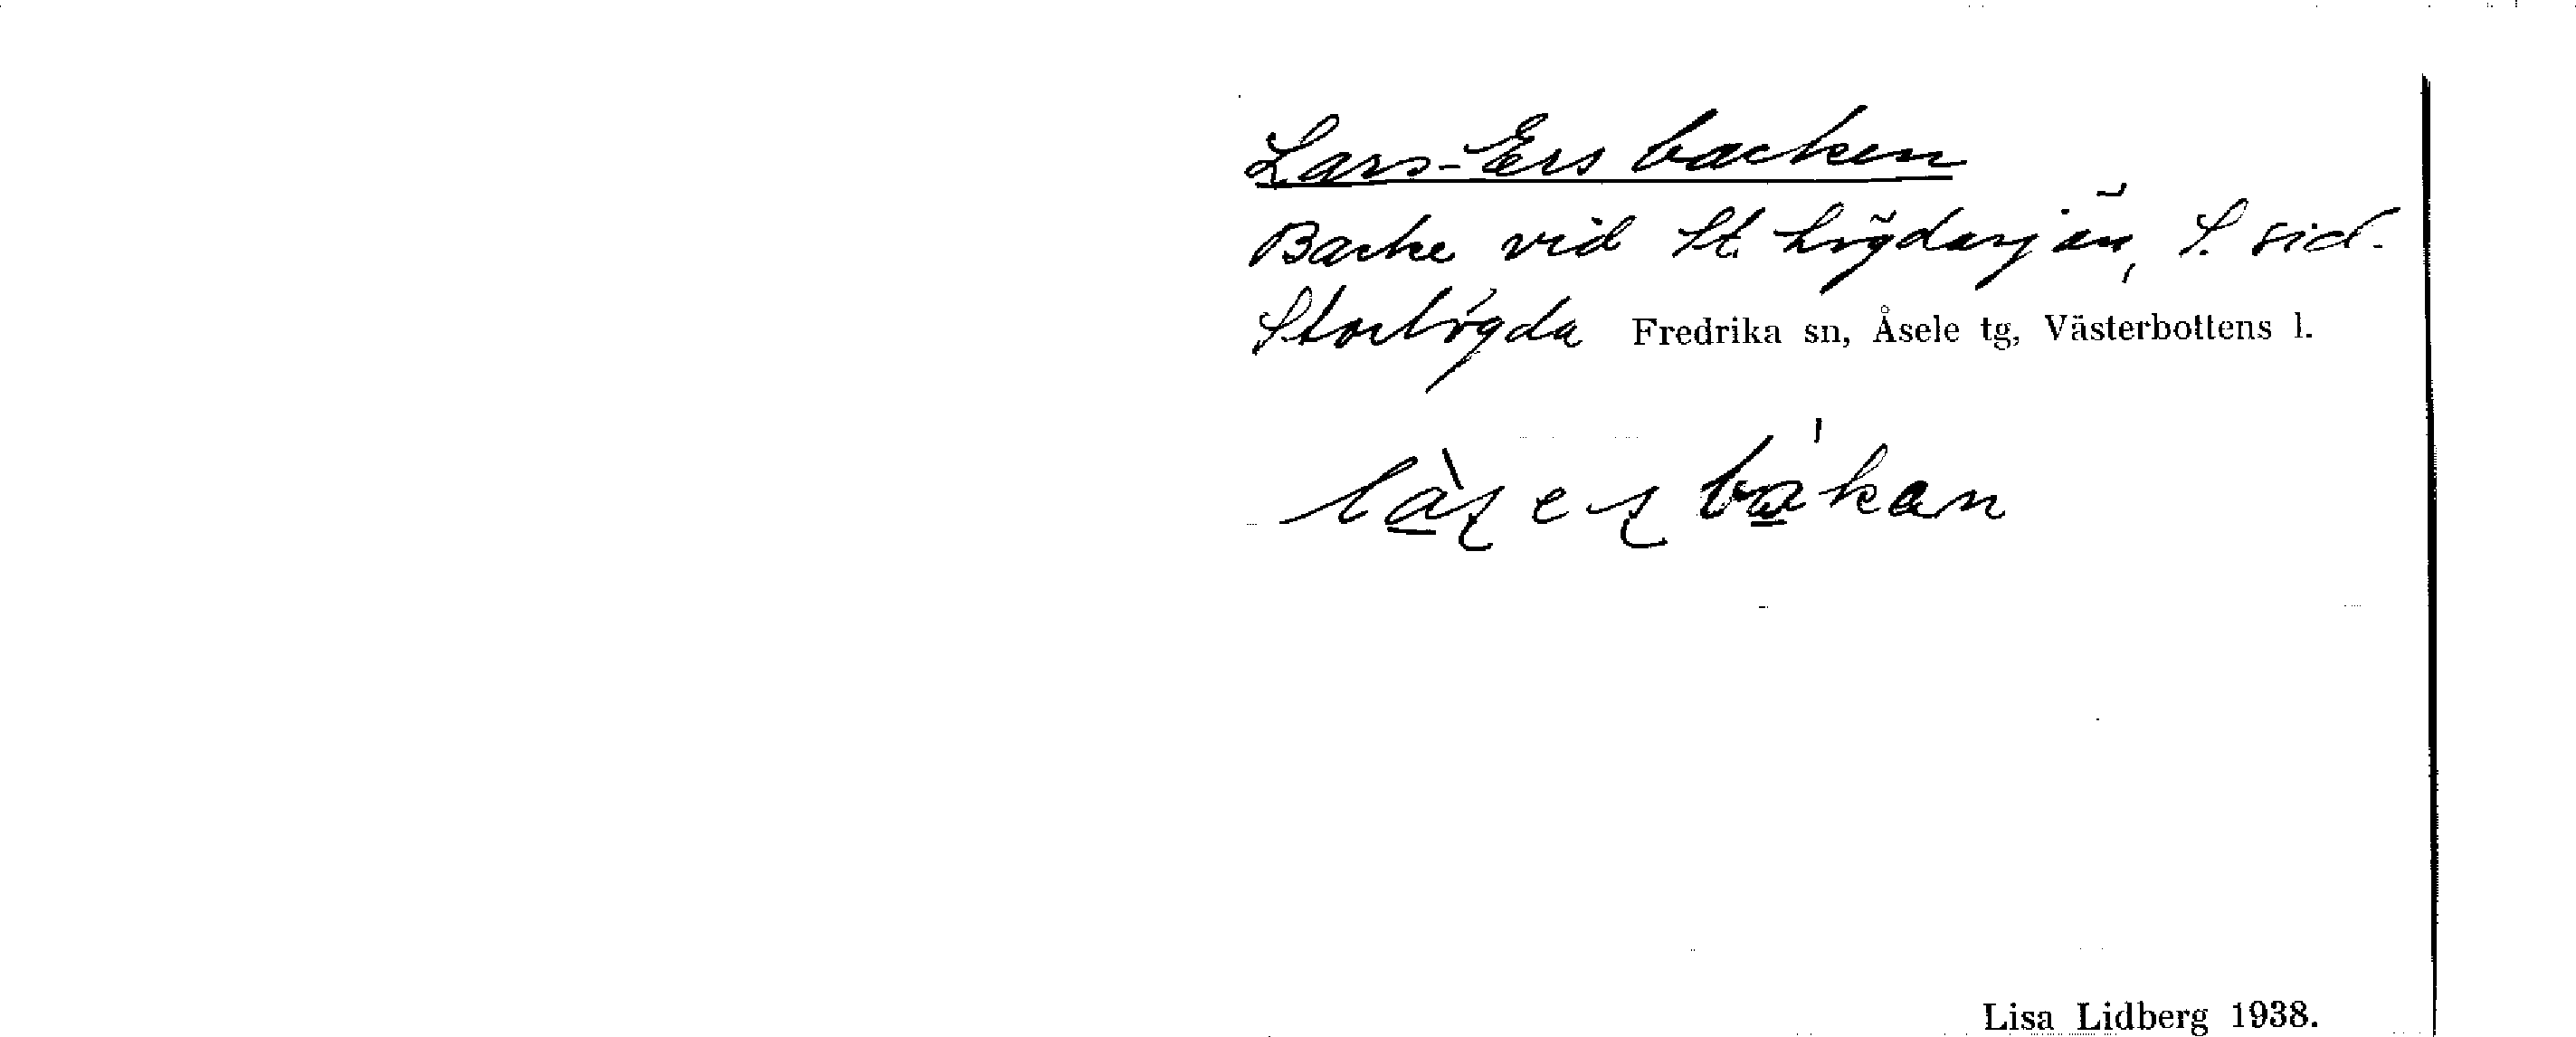 Lars-Ers backen
Backe vid St. Lögdasjön, S. sid.
Storlögda Fredrika sn, Åsele tg, Västerbottens l.
Lisa Lidberg 1938.